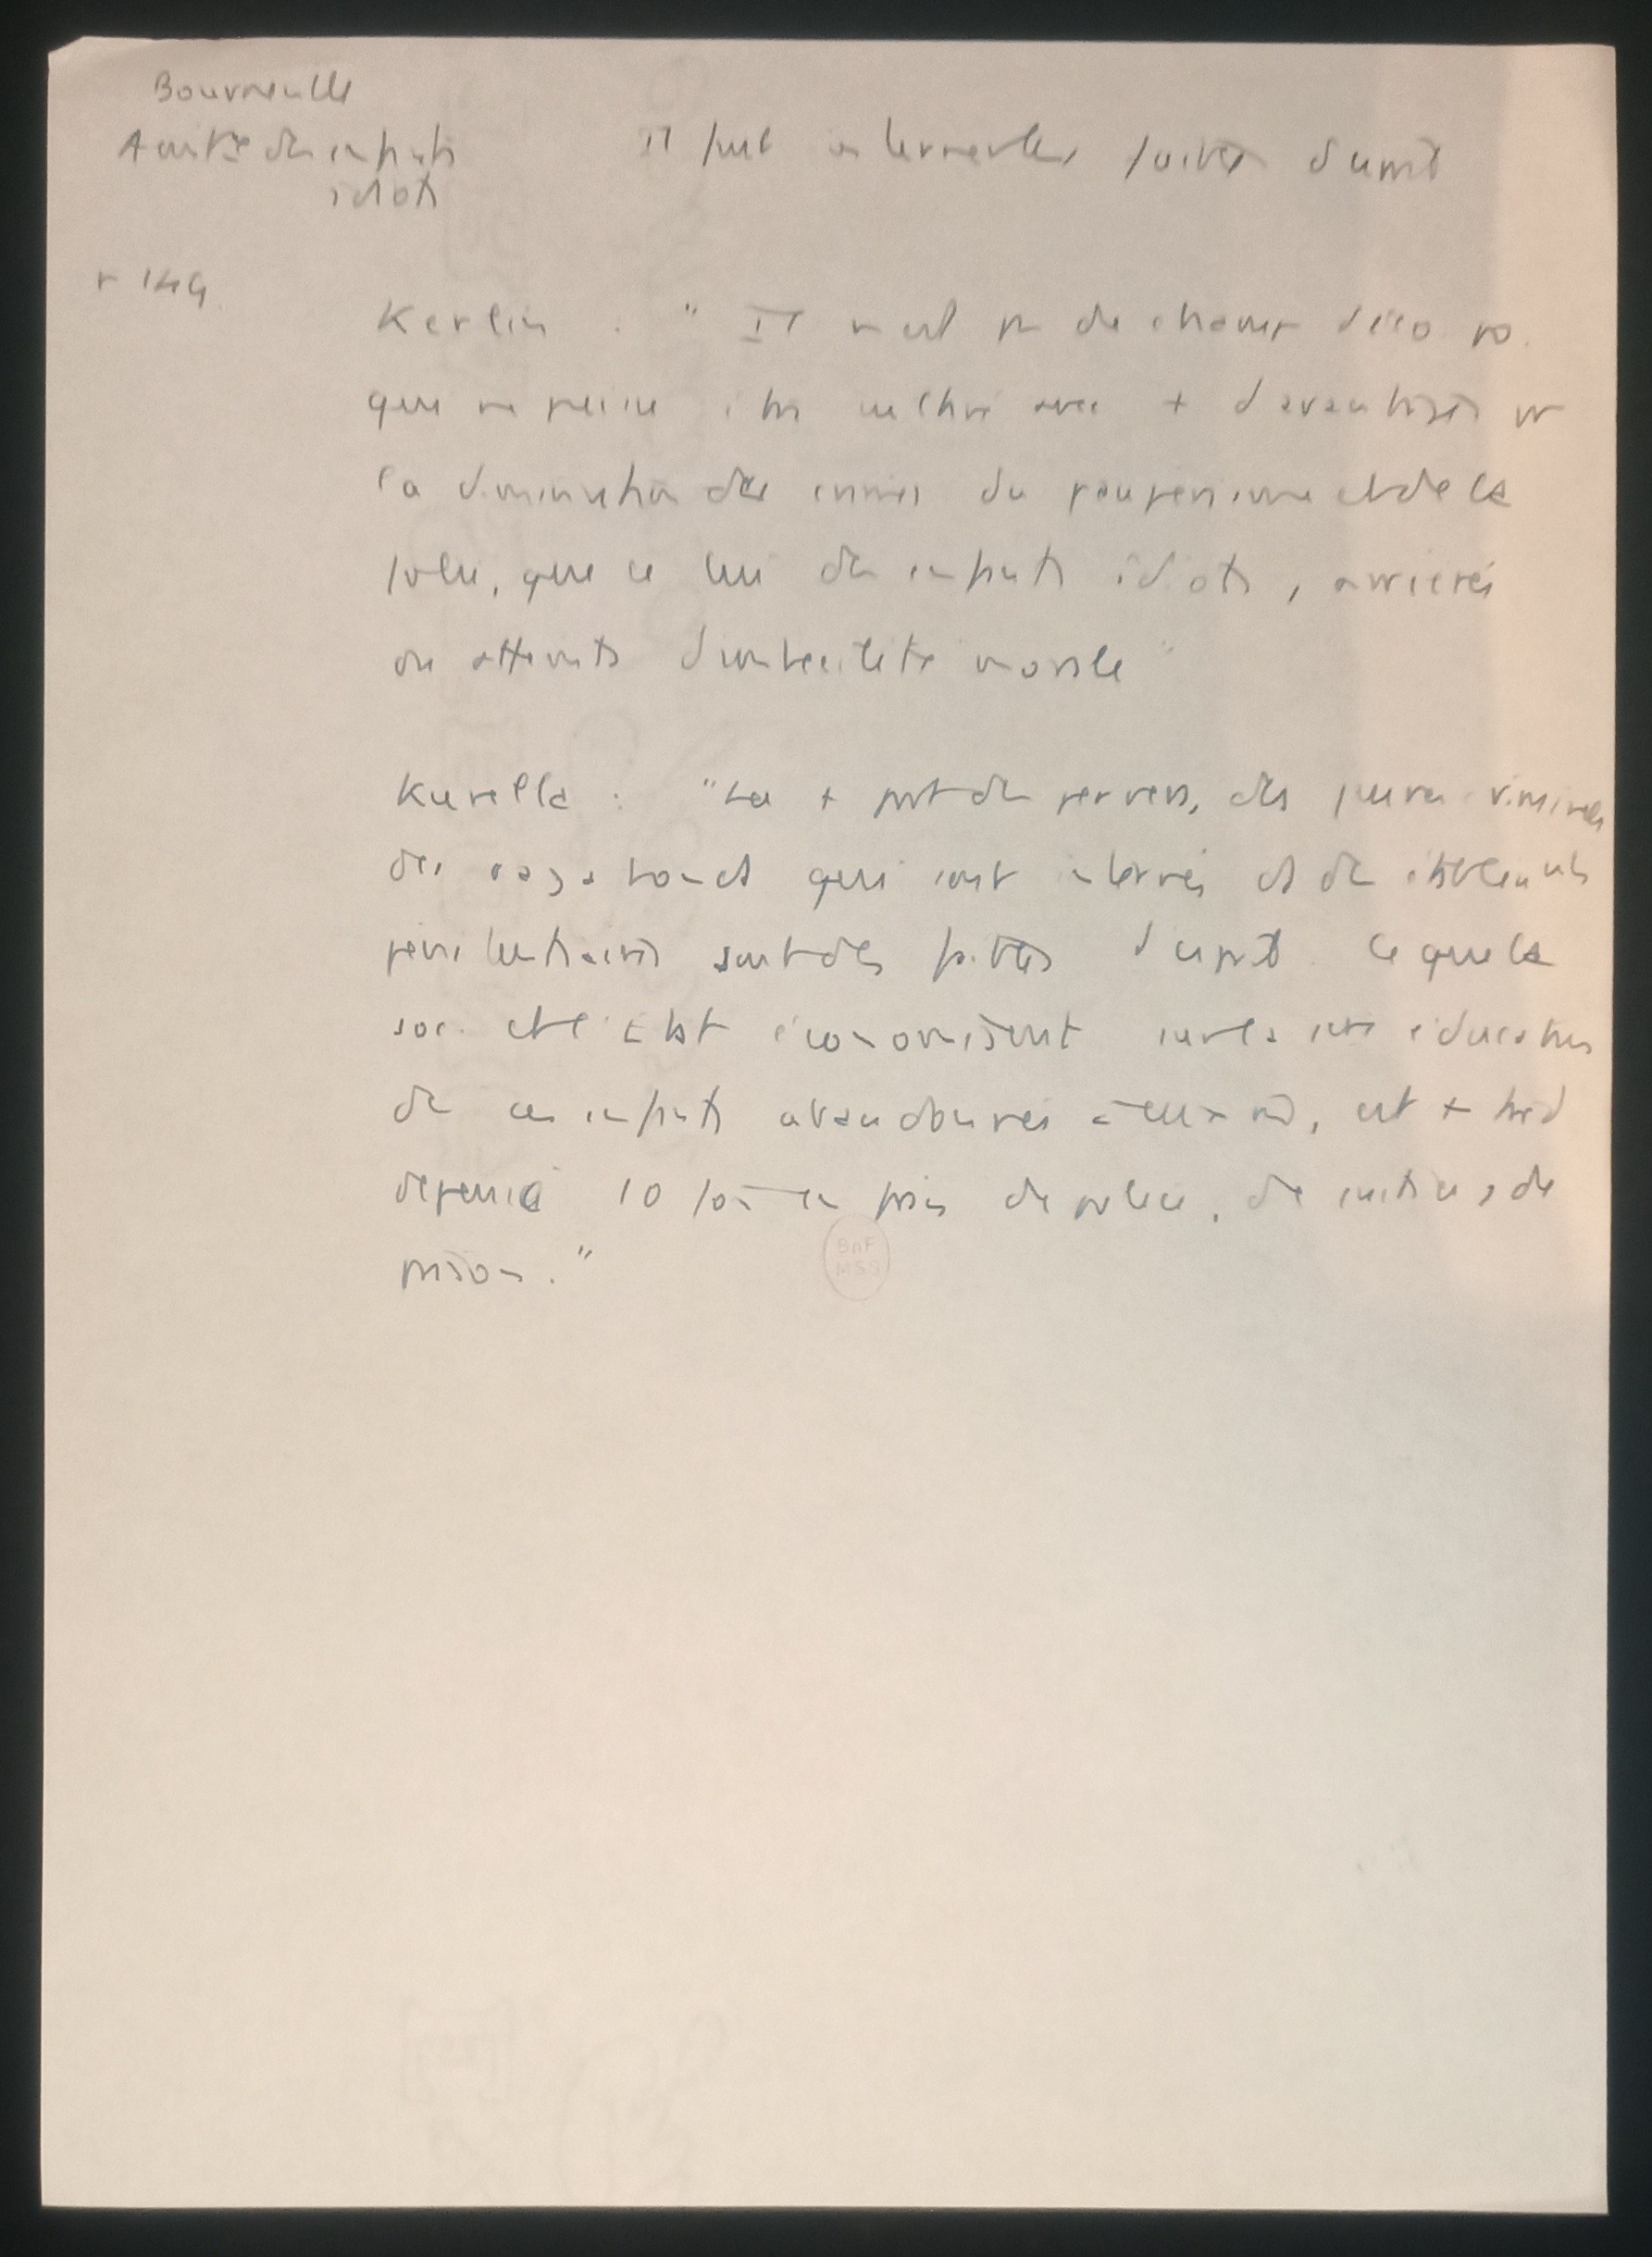 Bourneville
Assistce des enfants
idiots
Il faut interner les faibles d'esprit
p 149
Kerlin : " Il n'est pas de champ d'éco. po.
que ne puisse être cultivé avec + d'avantages pr
la diminution des crimes du paupérisme et de la
folie, que celui des enfants idiots, arriérés
ou atteints d'imbécilité morale "
Kurella : " La + part des pervers, des jeunes criminels
des vagabonds qui sont internés ds des établiments
pénitentiaires sont des faibles d'esprit. Ce que la
soc. et l'Etat économisent sur la education
de ces enfants abandonnés à eux mê, est + tard
dépensé 10 fois en frais de police, de justice, de
prison. "
BnF
MSS